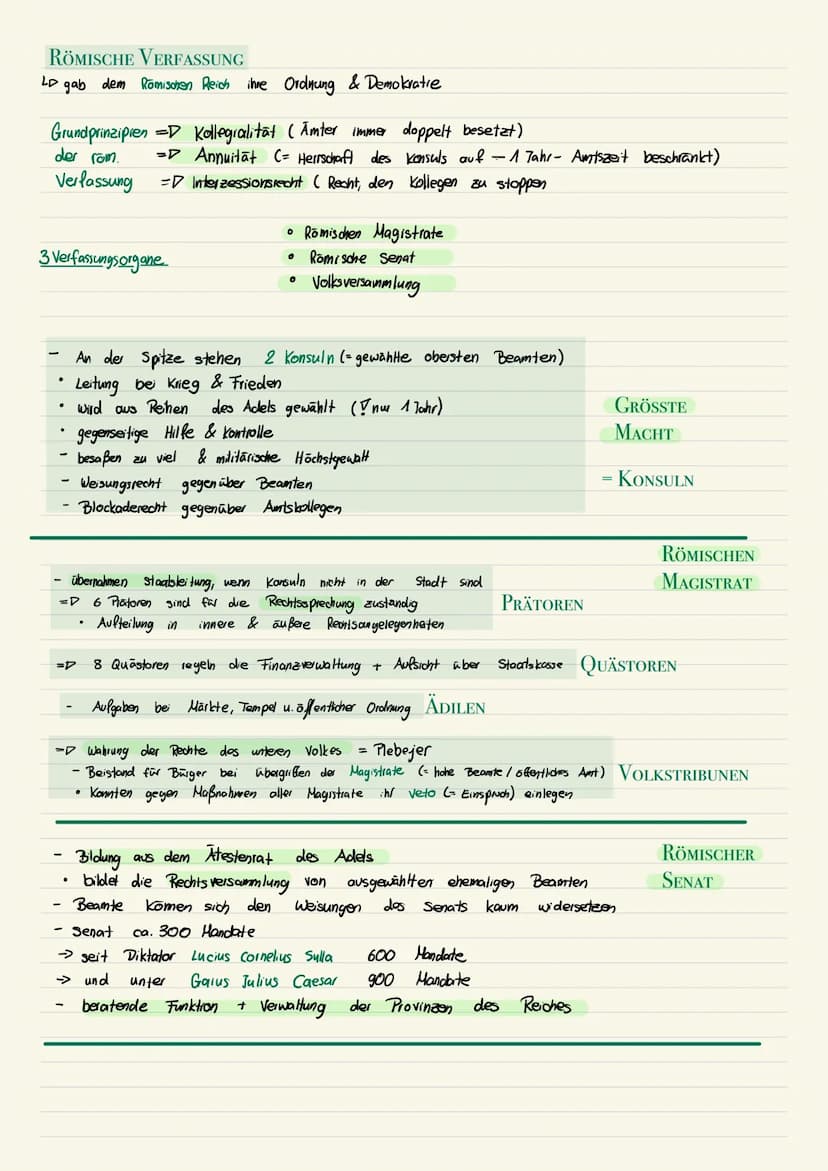 RÖMISCHE VERFASSUNG
↳ gab dem Römischen Reich ihre Ordnung & Demokratie
Grundprinzipien => Kollegialität ( Ämter immer doppelt besetzt)
der röm. => Annuität (= Herrschaft des Konsuls auf – 1 Jahr- Amtszeit beschränkt)
Verfassung => Interzessionsrecht ( Recht, den Kollegen zu stoppen
• Römischen Magistrate
3 Verfassungsorgane • Römische Senat
• Volksversammlung
- An der Spitze stehen 2 Konsuln (= gewählte obersten Beamten)
• Leitung bei Krieg & Frieden
• wird aus Reihen des Adels gewählt (! nur 1 Jahr) GRÖSSTE
• gegenseitige Hilfe & Kontrolle MACHT
- besaßen zu viel & militärische Höchstgewalt
- Weisungsrecht gegenüber Beamten = KONSULN
- Blockaderecht gegenüber Amtskollegen
RÖMISCHEN
MAGISTRAT
- übernahmen Staatsleitung, wenn Konsuln nicht in der Stadt sind
=> 6 Prätoren sind für die Rechtssprechung zuständig PRÄTOREN
• Aufteilung in innere & äußere Rechtsangelegenheiten
=> 8 Quästoren regeln die Finanzverwaltung + Aufsicht über Staatskasse QUÄSTOREN
- Aufgaben bei Märkte, Tempel u. öffentlicher Ordnung ÄDILEN
=> Wahrung der Rechte des unteren Volkes = Plebejer
- Beistand für Bürger bei Übergriffen der Magistrate (= hohe Beamte / öffentliches Amt) VOLKSTRIBUNEN
• Konnten gegen Maßnahmen aller Magistrate ihr Veto (= Einspruch) einlegen
- Bildung aus dem Ätestenrat des Adels RÖMISCHER
• bildet die Rechtsversammlung von ausgewählten ehemaligen Beamten SENAT
- Beamte können sich den Weisungen des Senats kaum widersetzen
- Senat ca. 300 Mandate
→ seit Diktator Lucius Cornelius Sulla 600 Mandate
→ und unter Gaius Julius Caesar 900 Mandate
- beratende Funktion + Verwaltung der Provinzen des Reiches